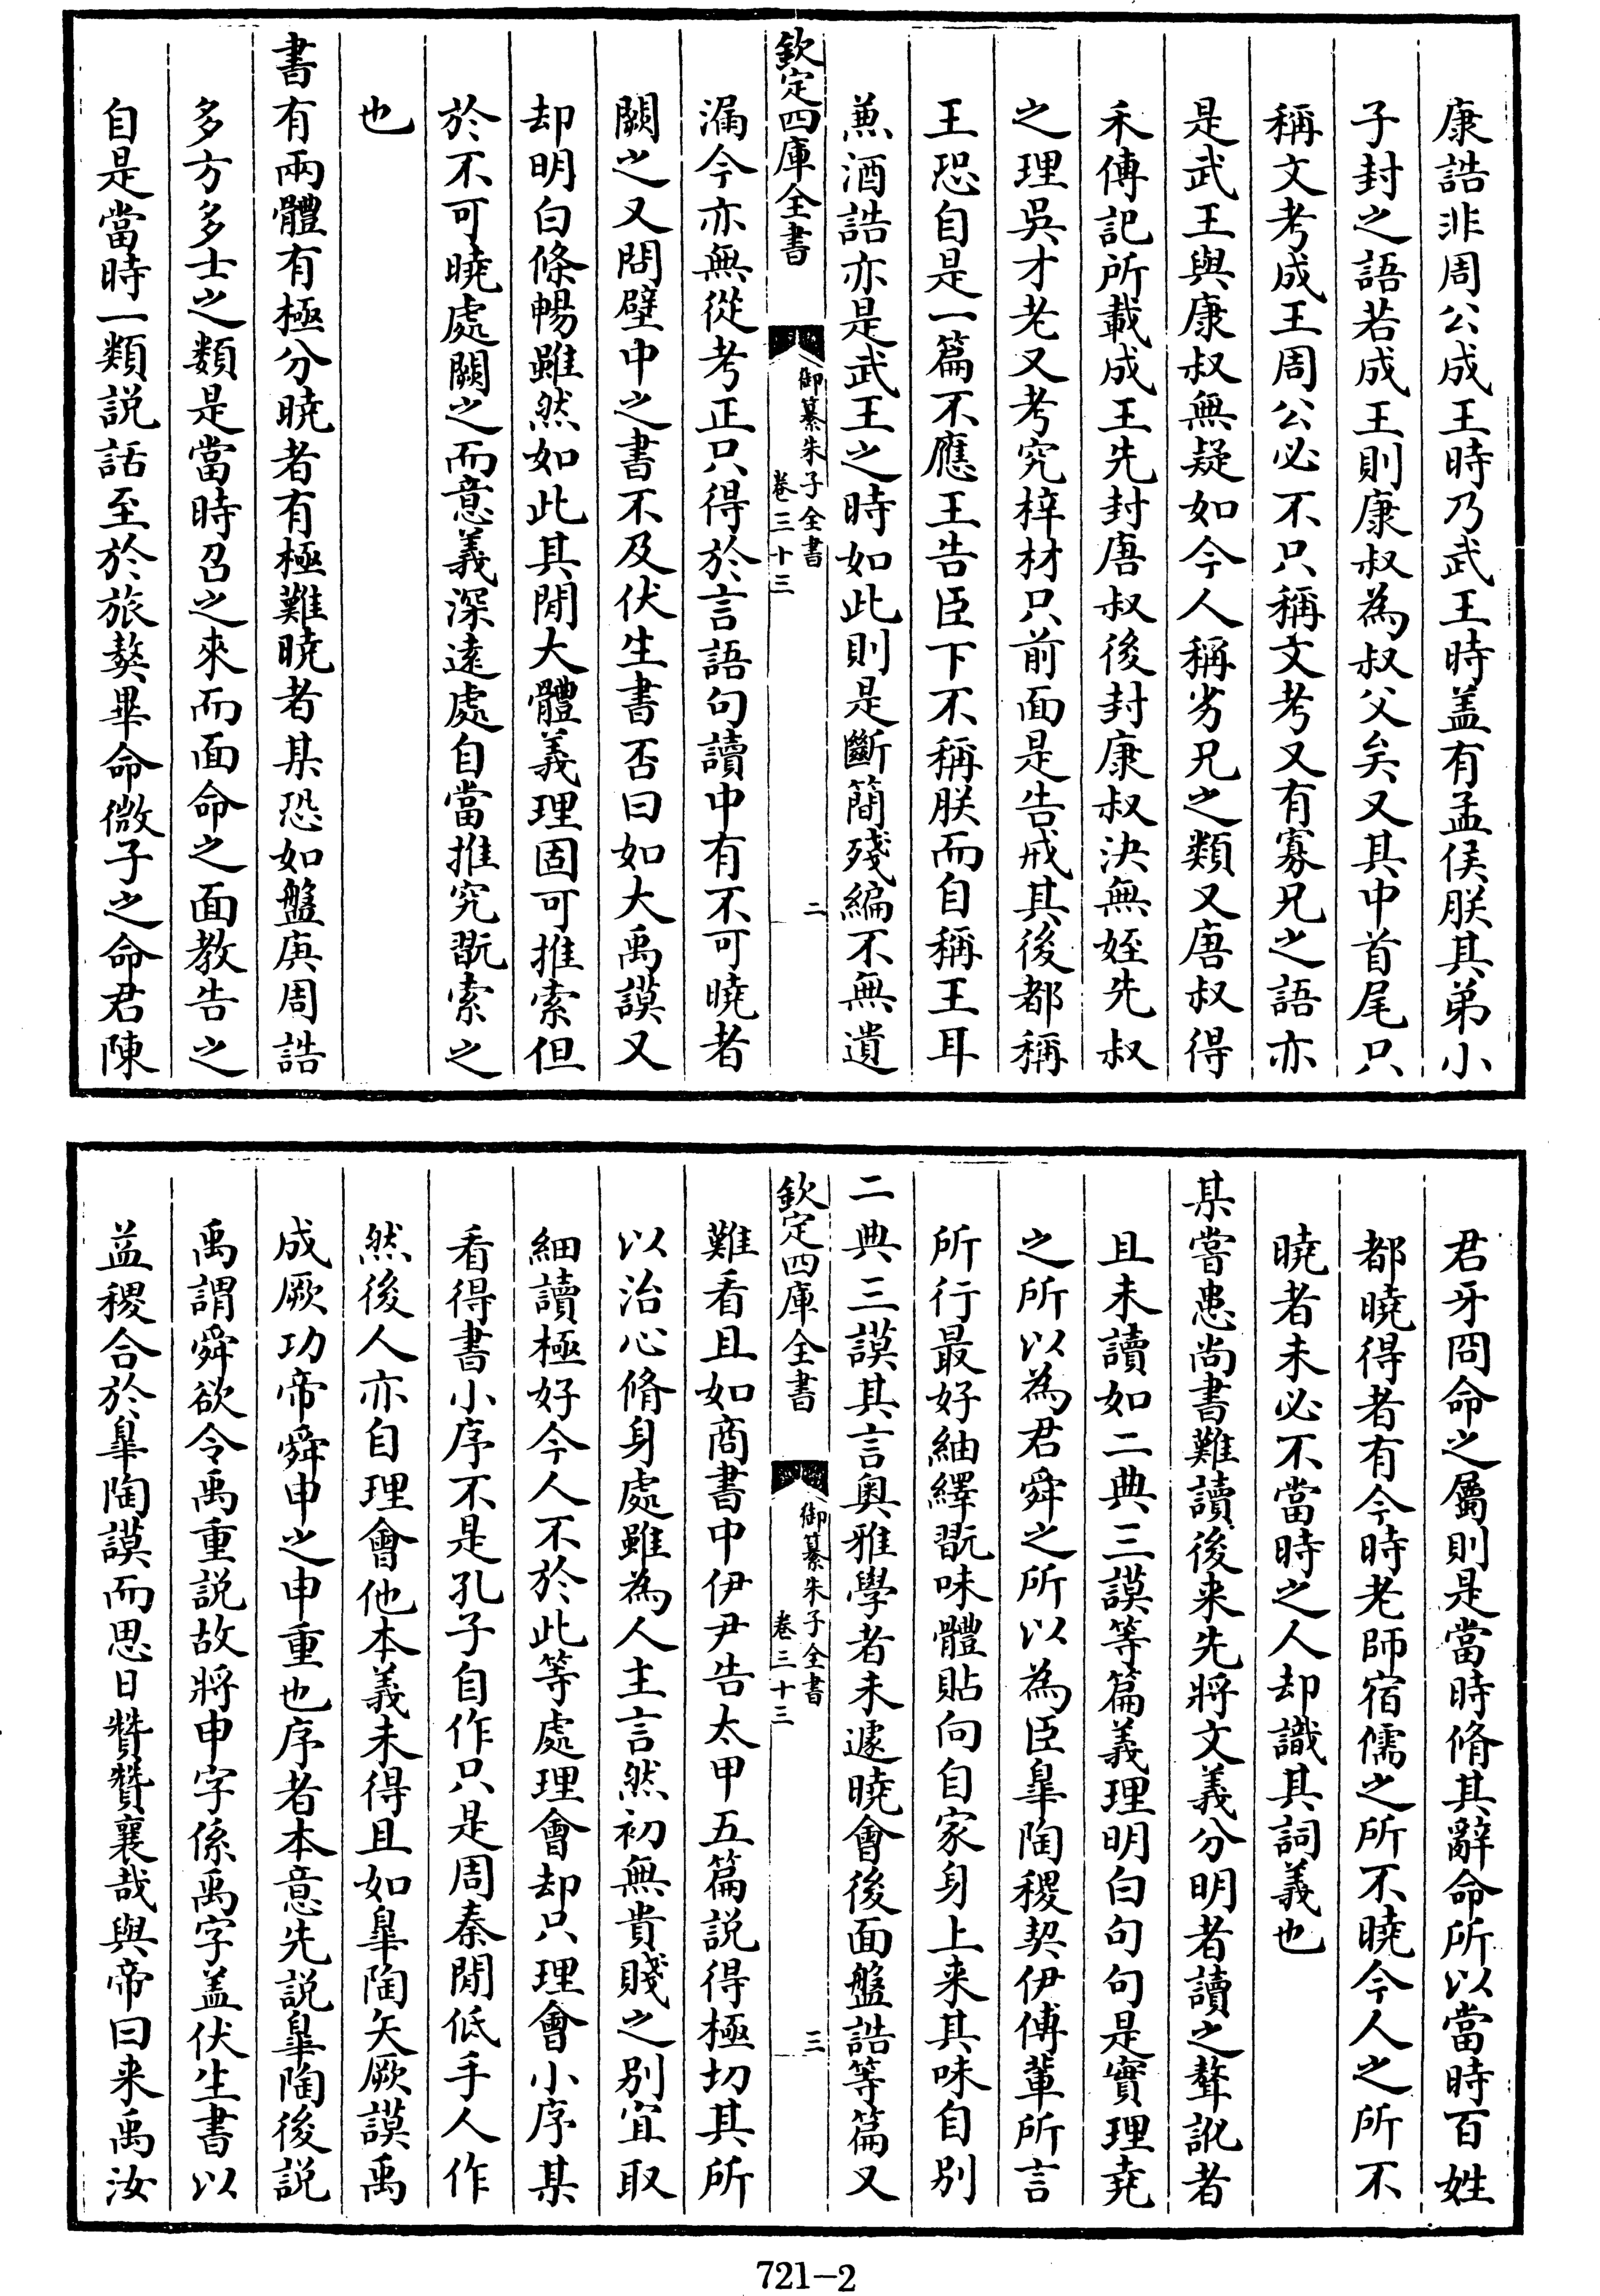 康誥非周公成王時乃武王時盖有孟侯朕其弟小
子封之語若成王則康叔為叔父矣又其中首尾只
稱文考成王周公必不只稱文考又有寡兄之語亦
是武王與康叔無疑如今人稱劣兄之類又唐叔得
禾傳記所載成王先封唐叔後封康叔決無姪先叔
之理吳才老又考究梓材只前面是告戒其後都稱
王恐自是一篇不應王告臣下不稱朕而自稱王耳
兼酒誥亦是武王之時如此則是斷簡殘編不無遺
欽定四庫全書
御纂朱子全書
卷三十三
二
漏今亦無從考正只得於言語句讀中有不可曉者
闕之又問壁中之書不及伏生書否曰如大禹謨又
却明白條暢雖然如此其間大體義理固可推索但
於不可曉處闕之而意義深遠處自當推究翫索之
也
書有兩體有極分曉者有極難曉者某恐如盤庚周誥
多方多士之類是當時召之來而面命之面教告之
自是當時一類説話至於旅獒畢命微子之命君陳
君牙冏命之屬則是當時脩其辭命所以當時百姓
都曉得者有今時老師宿儒之所不曉今人之所不
曉者未必不當時之人却識其詞義也
某嘗患尚書難讀後来先將文義分明者讀之聱訛者
且未讀如二典三謨等篇義理明白句句是實理堯
之所以為君舜之所以為臣臯陶稷契伊傅輩所言
所行最好紬繹翫味體貼向自家身上来其味自别
二典三謨其言奥雅學者未遽曉會後面盤誥等篇又
欽定四庫全書
御纂朱子全書
卷三十三
三
難看且如商書中伊尹告太甲五篇説得極切其所
以治心脩身處雖為人主言然初無貴賤之别宜取
細讀極好今人不於此等處理會却只理會小序某
看得書小序不是孔子自作只是周秦間低手人作
然後人亦自理會他本義未得且如臯陶矢厥謨禹
成厥功帝舜申之申重也序者本意先説臯陶後説
禹謂舜欲令禹重説故將申字係禹字盖伏生書以
益稷合於臯陶謨而思日贊贊襄哉與帝曰来禹汝
721-2